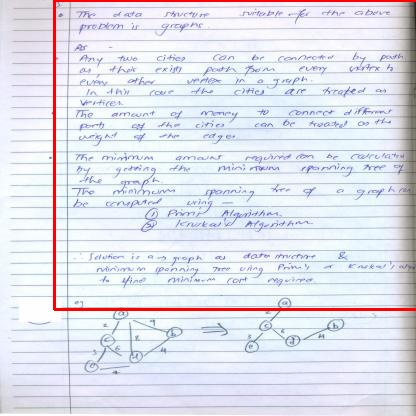 The data structure suitable for the above
problem is graphs.
As -
Any two cities can be connected by path
as their exists path from every vertex to
every other vertex in a graph.
In this case the cities are treated as
vertices.
The amount of money to connect different
parts of the cities can be treated as the
weight of the edges.
The minimum amount required can be calculated
by getting the minimum spanning tree of
the graph.
The minimum spanning tree of a graph can
be computed using —
① Prim's Algorithm.
② Kruskal's Algorithm
∴ Solution is a graph as data structure &
minimum spanning tree using Prim's or Kruskal's algo
to find minimum cost required.
eg
a a
2 9
c 8 b ⇒ c 6 b
3 6 4 3 d 4
e d e